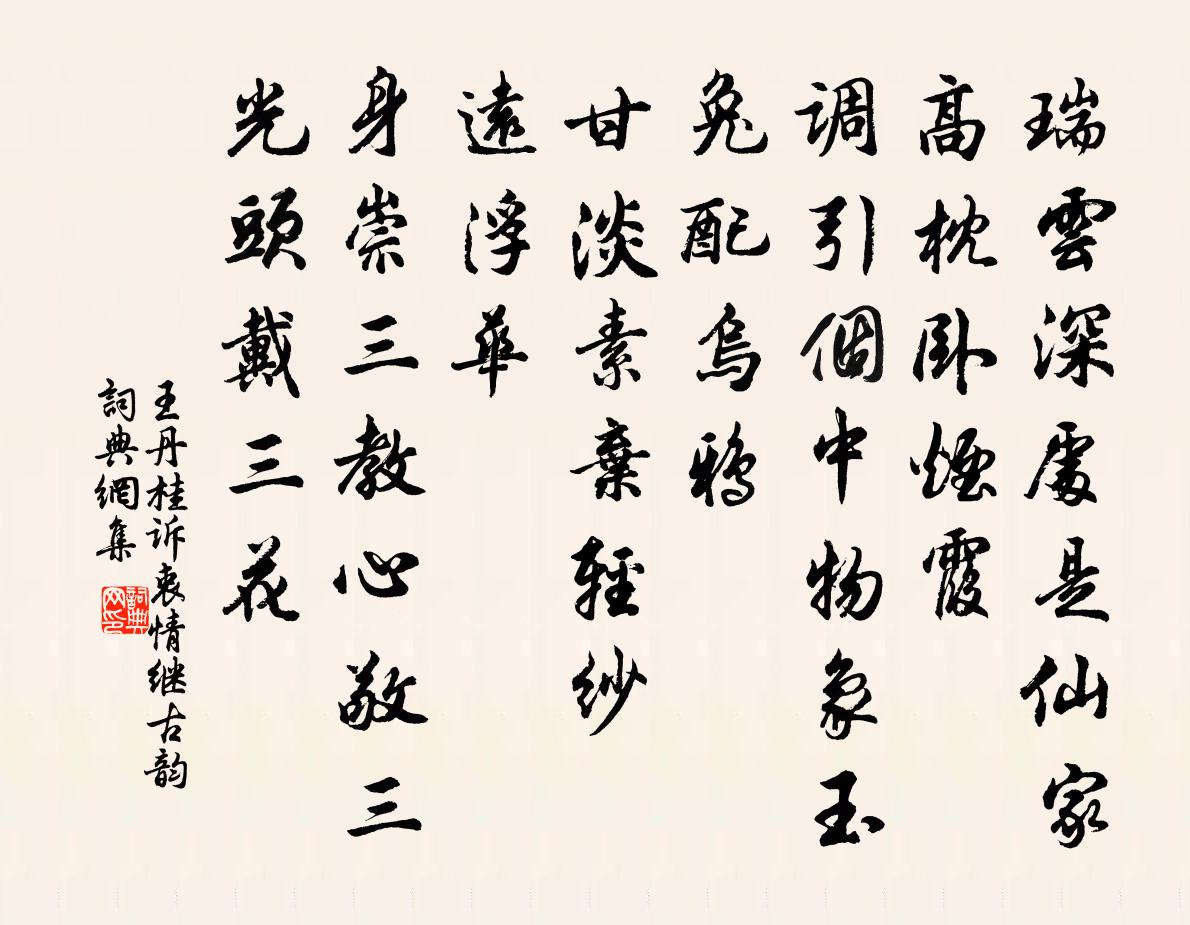 瑞雲深處是仙家
高枕卧煙霞
调引個中物象玉
兔配烏鴉
甘淡素棄輕紗
遠浮華
身崇三教心敬三
光頭戴三花
王丹桂诉衷情继古韵
詞典網集
詞典网印